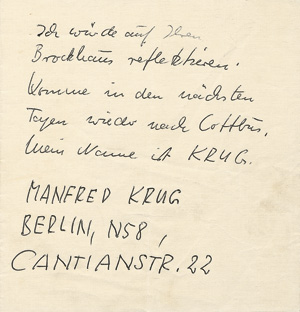 Ich würde auf Ihren
Brockhaus reflektieren.
Komme in den nächsten
Tagen wieder nach Cottbus.
Mein Name ist KRUG.
MANFRED KRUG
BERLIN, N58,
CANTIANSTR. 22